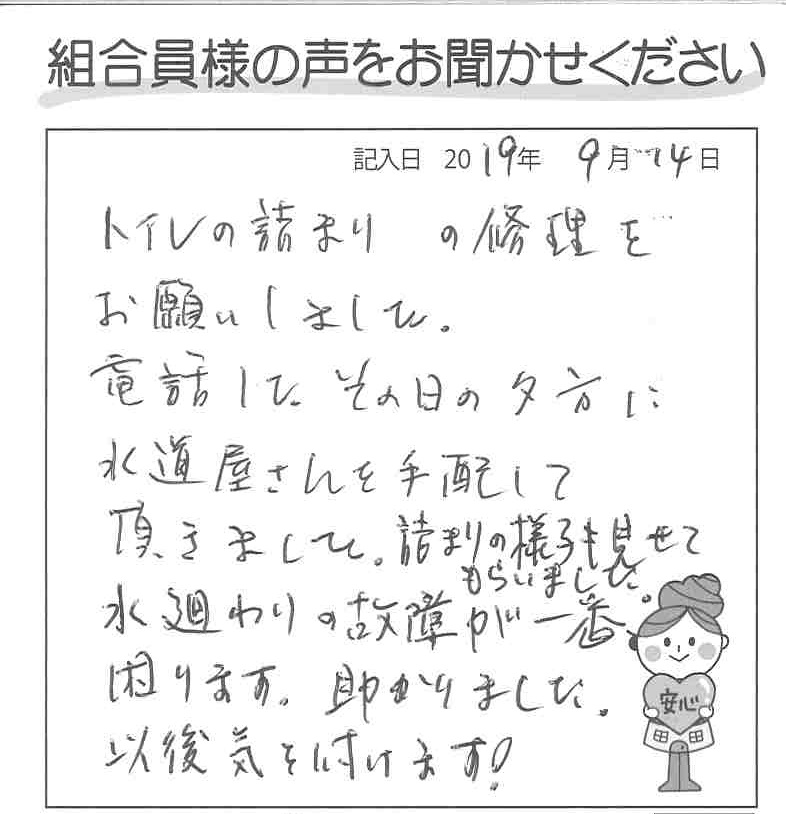 組合員様の声をお聞かせください
記入日 2019年 9月14日
トイレの詰まり の修理を
お願いしました。
電話した その日の夕方に
水道屋さんを手配して
頂きました。詰まりの様子も見せて
もらいました。
水廻わりの故障が一番
困ります。助かりました。
以後気を付けます!
安心